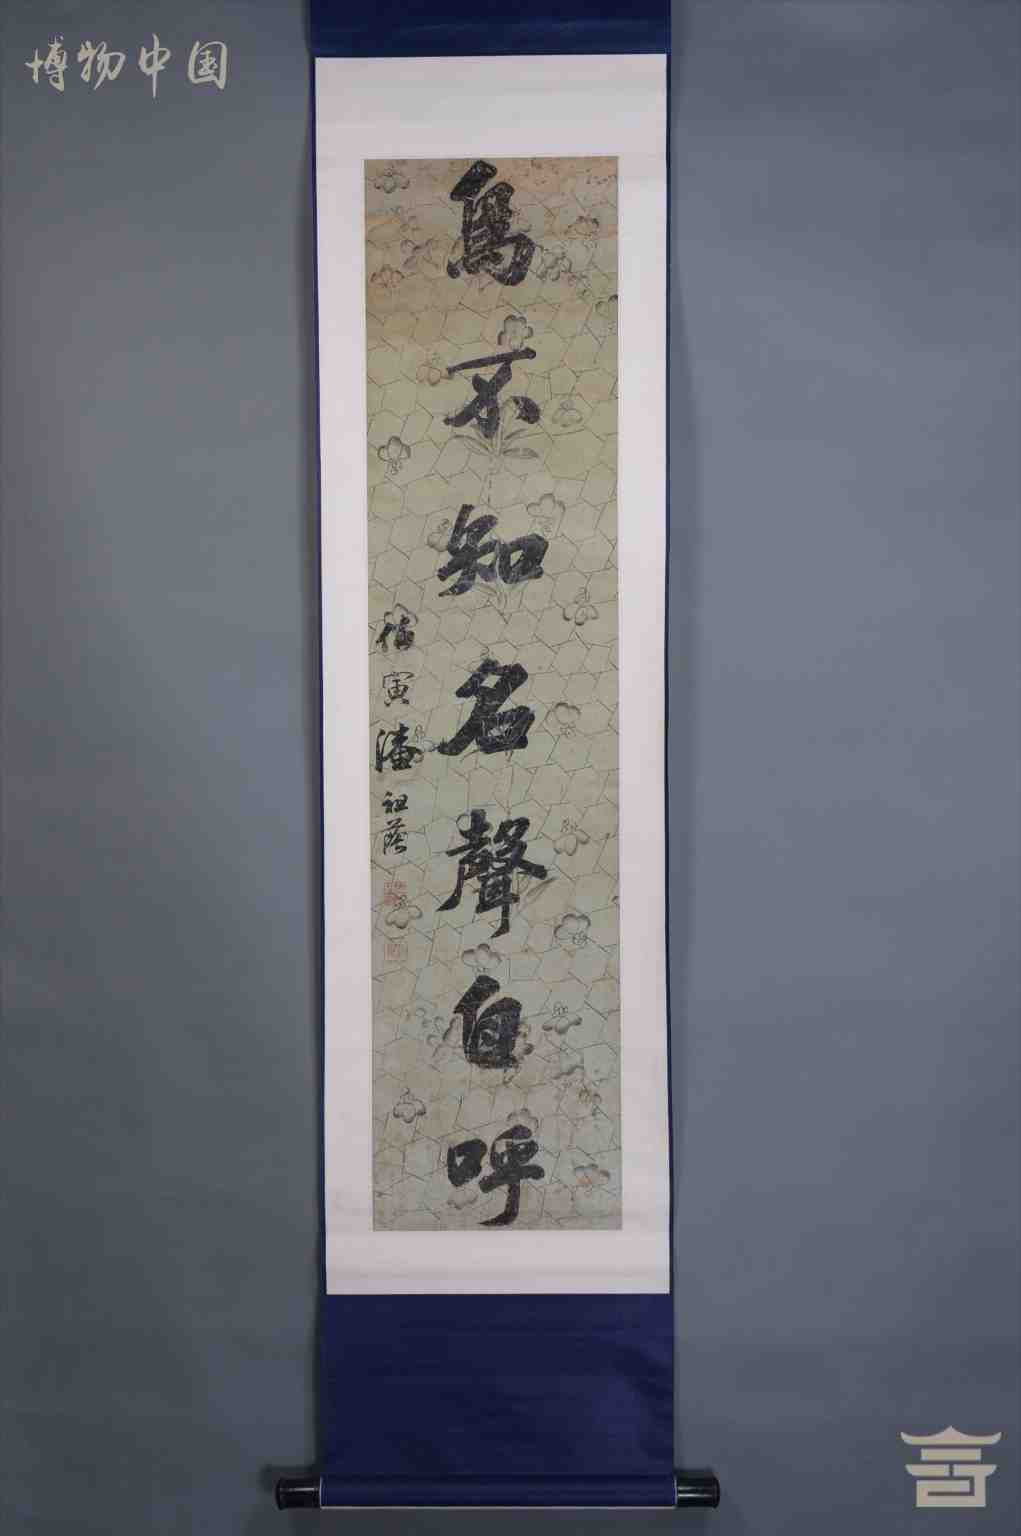 博物中国
鳥不知名聲自呼
伯寅潘祖蔭